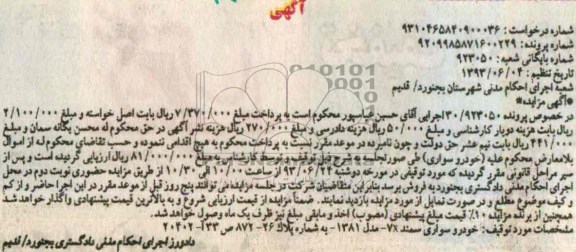 آگهی
شماره درخواست : ۹۳۱۰۴۶۵۸۴۰۹۰۰۰۳۶
شماره پرونده: ۹۲۰۹۹۸۵۸۷۱۶۰۰۲۲۹
شماره بایگانی شعبه: ۹۲۳۰۵۰
تاریخ تنظیم : ۱۳۹۳/۰۶/۰۴
شعبه اجرای احکام مدنی شهرستان بجنورد/ قدیم
*آگهی مزایده*
در خصوص پرونده ۳۰/۹۲۳۰۵۰ اجرایی آقای حسین عباسپور محکوم است به پرداخت مبلغ ۷/۳۷۰/۰۰۰ ریال بابت اصل خواسته و مبلغ ۲/۱۰۰/۰۰۰
ریال بابت هزینه دوبار کارشناسی و مبلغ ۵۰/۰۰۰ ریال هزینه دادرسی و مبلغ ۲۷۰/۰۰۰ ریال هزینه نشر آگهی در حق محکوم له محسن یگانه سمان و مبلغ
۴۴۱/۰۰۰ ریال بابت نیم عشر حق دولت و چون نامبرده در موعد مقرر نسبت به پرداخت محکوم به هیچ اقدامی ننموده و حسب تقاضای محکوم له از اموال
بلامعارض محکوم علیه (خودرو سواری) طی صورتجلسه به شرح ذیل توقیف و توسط کارشناس به مبلغ ۸۱/۰۰۰/۰۰۰ ریال ارزیابی گردیده است و پس از
سیر مراحل قانونی مقرر گردیده که مورد توقیفی در مورخه دوشنبه ۹۳/۰۶/۲۴ از ساعت ۱۰/۰۰ الی ۱۰/۳۰ از طریق مزایده حضوری نوبت دوم در محل
اجرای احکام مدنی دادگستری بجنورد به فروش برسد بنابراین متقاضیان شرکت در جلسه مزایده می توانند پنج روز قبل از موعد مقرر در این اجرا حاضر و از کم
و کیف موضوع مطلع و در وصورت تمایل از مورد مزایده بازدید نمایند. ضمناً مزایده از قیمت ارزیابی شروع و به بالاترین قیمت پیشنهادی واگذار خواهد شد
همچنین از برنده مزایده ۱۰٪ قیمت مبلغ پیشنهادی (مصوب) اخذ و مابقی مبلغ نیز ظرف یک ماه وصول خواهد شد.
مشخصات مورد توقیف: خودرو سواری سمند ۷X- مدل ۱۳۸۱- به شماره پلاک ۲۶- ۸۷۲ ص ۳۳-
۲۰۴۰۲
دادورز اجرای احکام مدنی دادگستری بجنورد/ قدیم